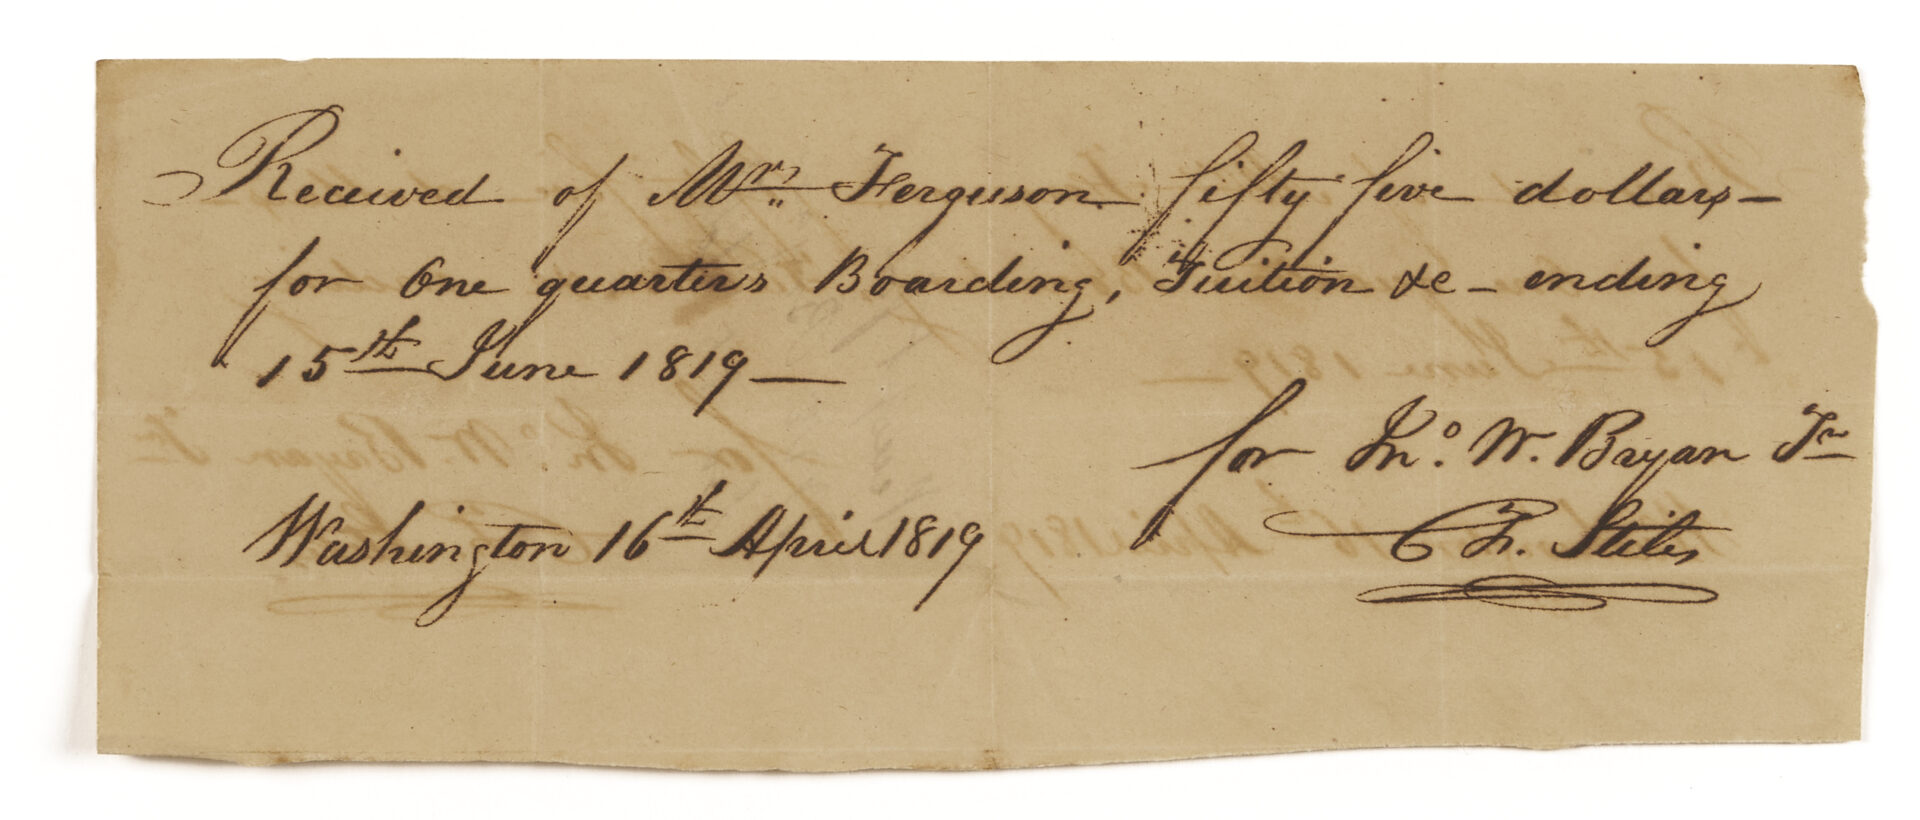 Received of Mrs. Ferguson fifty five dollars –
for One quarters Boarding, Tuition &c – ending
15th June 1819 —
for Jno. W. Bryan Jr
Washington 16th April 1819
Stiles